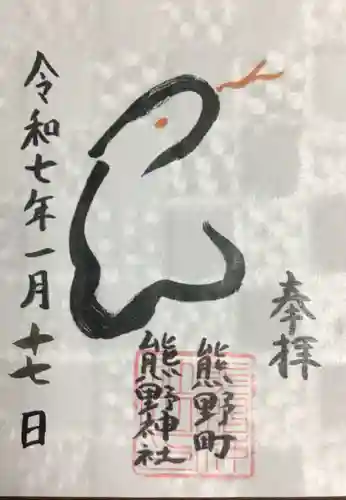 奉拝
熊野町
熊野神社
令和七年一月十七日